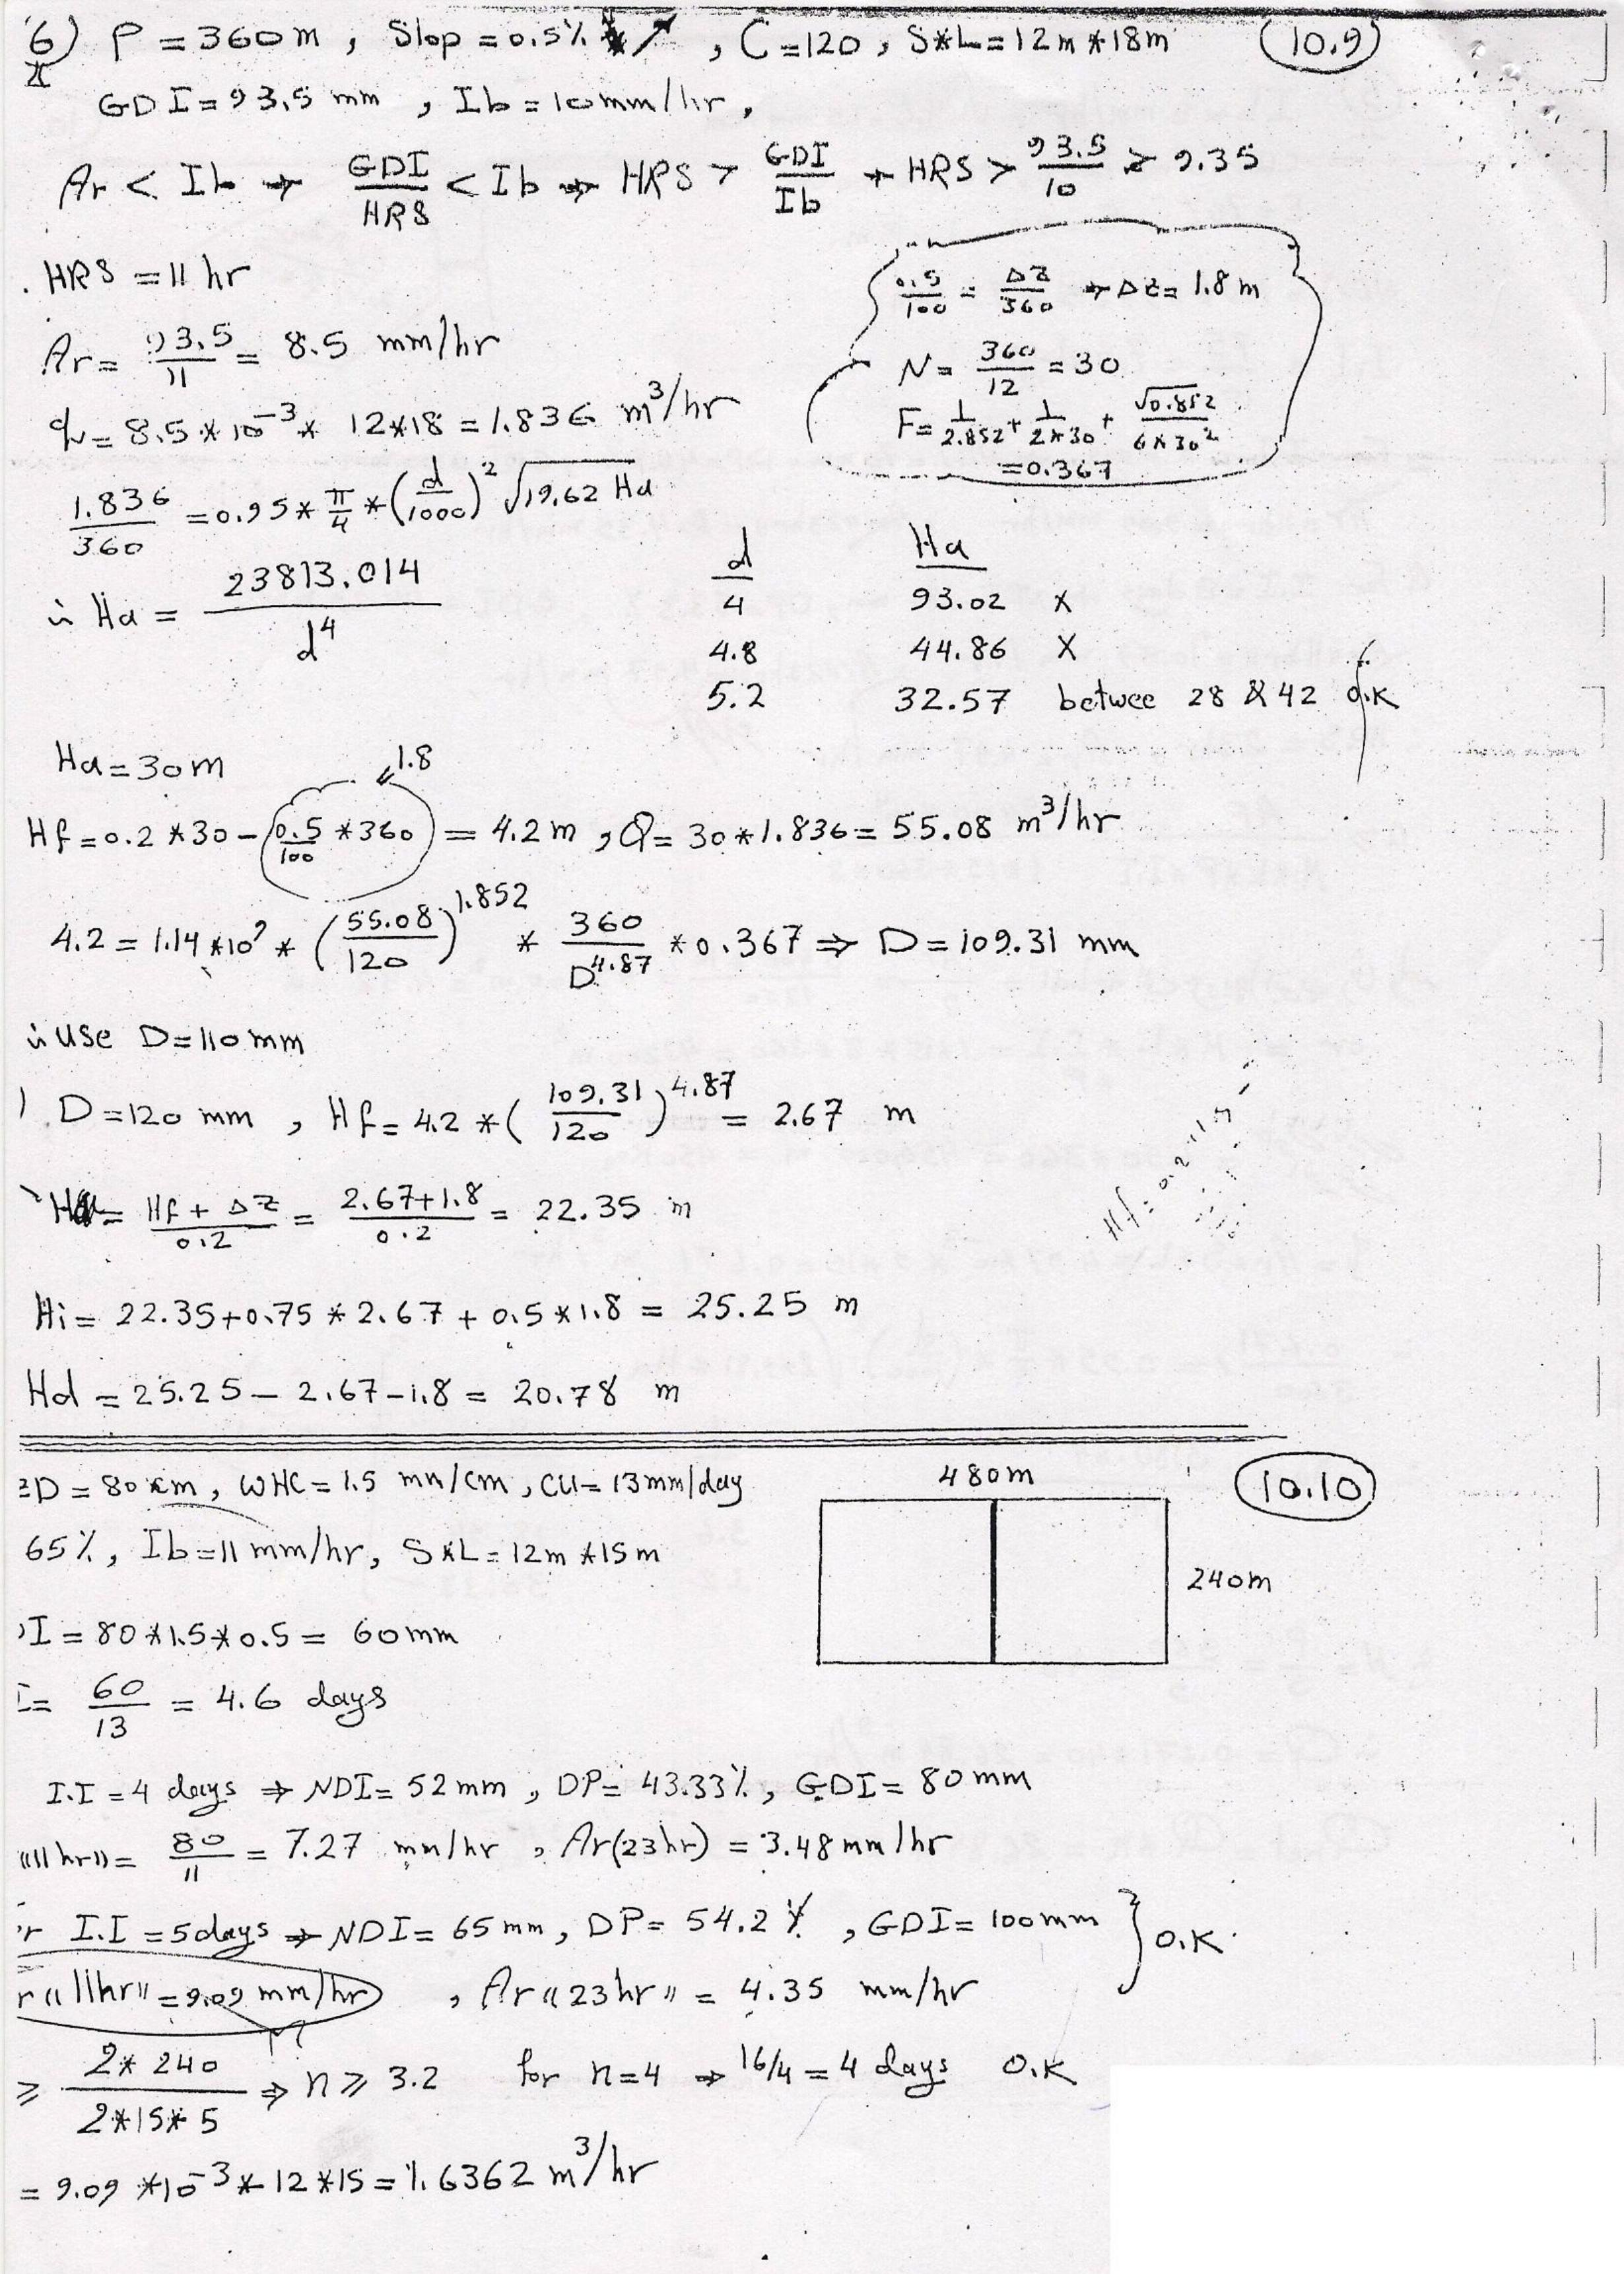 6) P = 360m , Slop = 0.5% ↗ , C = 120 , S*L = 12m * 18m (10.9)
GDI = 93.5 mm , Ib = 10mm/hr ,
Ar < Ib → GDI/HRS < Ib → HRS > GDI/Ib → HRS > 93.5/10 > 9.35
HRS = 11 hr
0.5/100 = ΔZ/360 → ΔZ = 1.8 m
Ar = 93.5/11 = 8.5 mm/hr
N = 360/12 = 30
q = 8.5 * 10^-3 * 12*18 = 1.836 m^3/hr
F = 1/2.852 + 1/2*30 + √0.852/6*30^2
= 0.367
1.836/360 = 0.95 * π/4 * (d/1000)^2 √19.62 Ha
∴ Ha = 23813.014/d^4
d Ha
4 93.02 X
4.8 44.86 X
5.2 32.57 betwee 28 & 42 O.K
Ha = 30m
1.8
Hf = 0.2 * 30 - (0.5/100 * 360) = 4.2m , Q = 30 * 1.836 = 55.08 m^3/hr
4.2 = 1.14 * 10^9 * (55.08/120)^1.852 * 360/D^4.87 * 0.367 ⇒ D = 109.31 mm
∴ Use D = 110mm
D = 120 mm , Hf = 4.2 * (109.31/120)^4.87 = 2.67 m
Ha = Hf + ΔZ/0.2 = 2.67+1.8/0.2 = 22.35 m
Hi = 22.35 + 0.75 * 2.67 + 0.5 * 1.8 = 25.25 m
Hd = 25.25 - 2.67 - 1.8 = 20.78 m
D = 80 cm , WHC = 1.5 mm/cm , CU = 13mm/day (10.10)
480m
65% , Ib = 11 mm/hr , S*L = 12m * 15m
240m
I = 80 * 1.5 * 0.5 = 60mm
I = 60/13 = 4.6 days
I.I = 4 days ⇒ NDI = 52mm , DP = 43.33% , GDI = 80mm
"11hr" = 80/11 = 7.27 mm/hr , Ar(23hr) = 3.48mm/hr
r I.I = 5days ⇒ NDI = 65mm , DP = 54.2 % , GDI = 100mm } O.K.
r "11hr" = 9.09 mm/hr , Ar "23hr" = 4.35 mm/hr
≥ 2*240/2*15*5 ⇒ n ≥ 3.2 for n=4 ⇒ 16/4 = 4 days O.K
= 9.09 * 10^-3 * 12 * 15 = 1.6362 m^3/hr